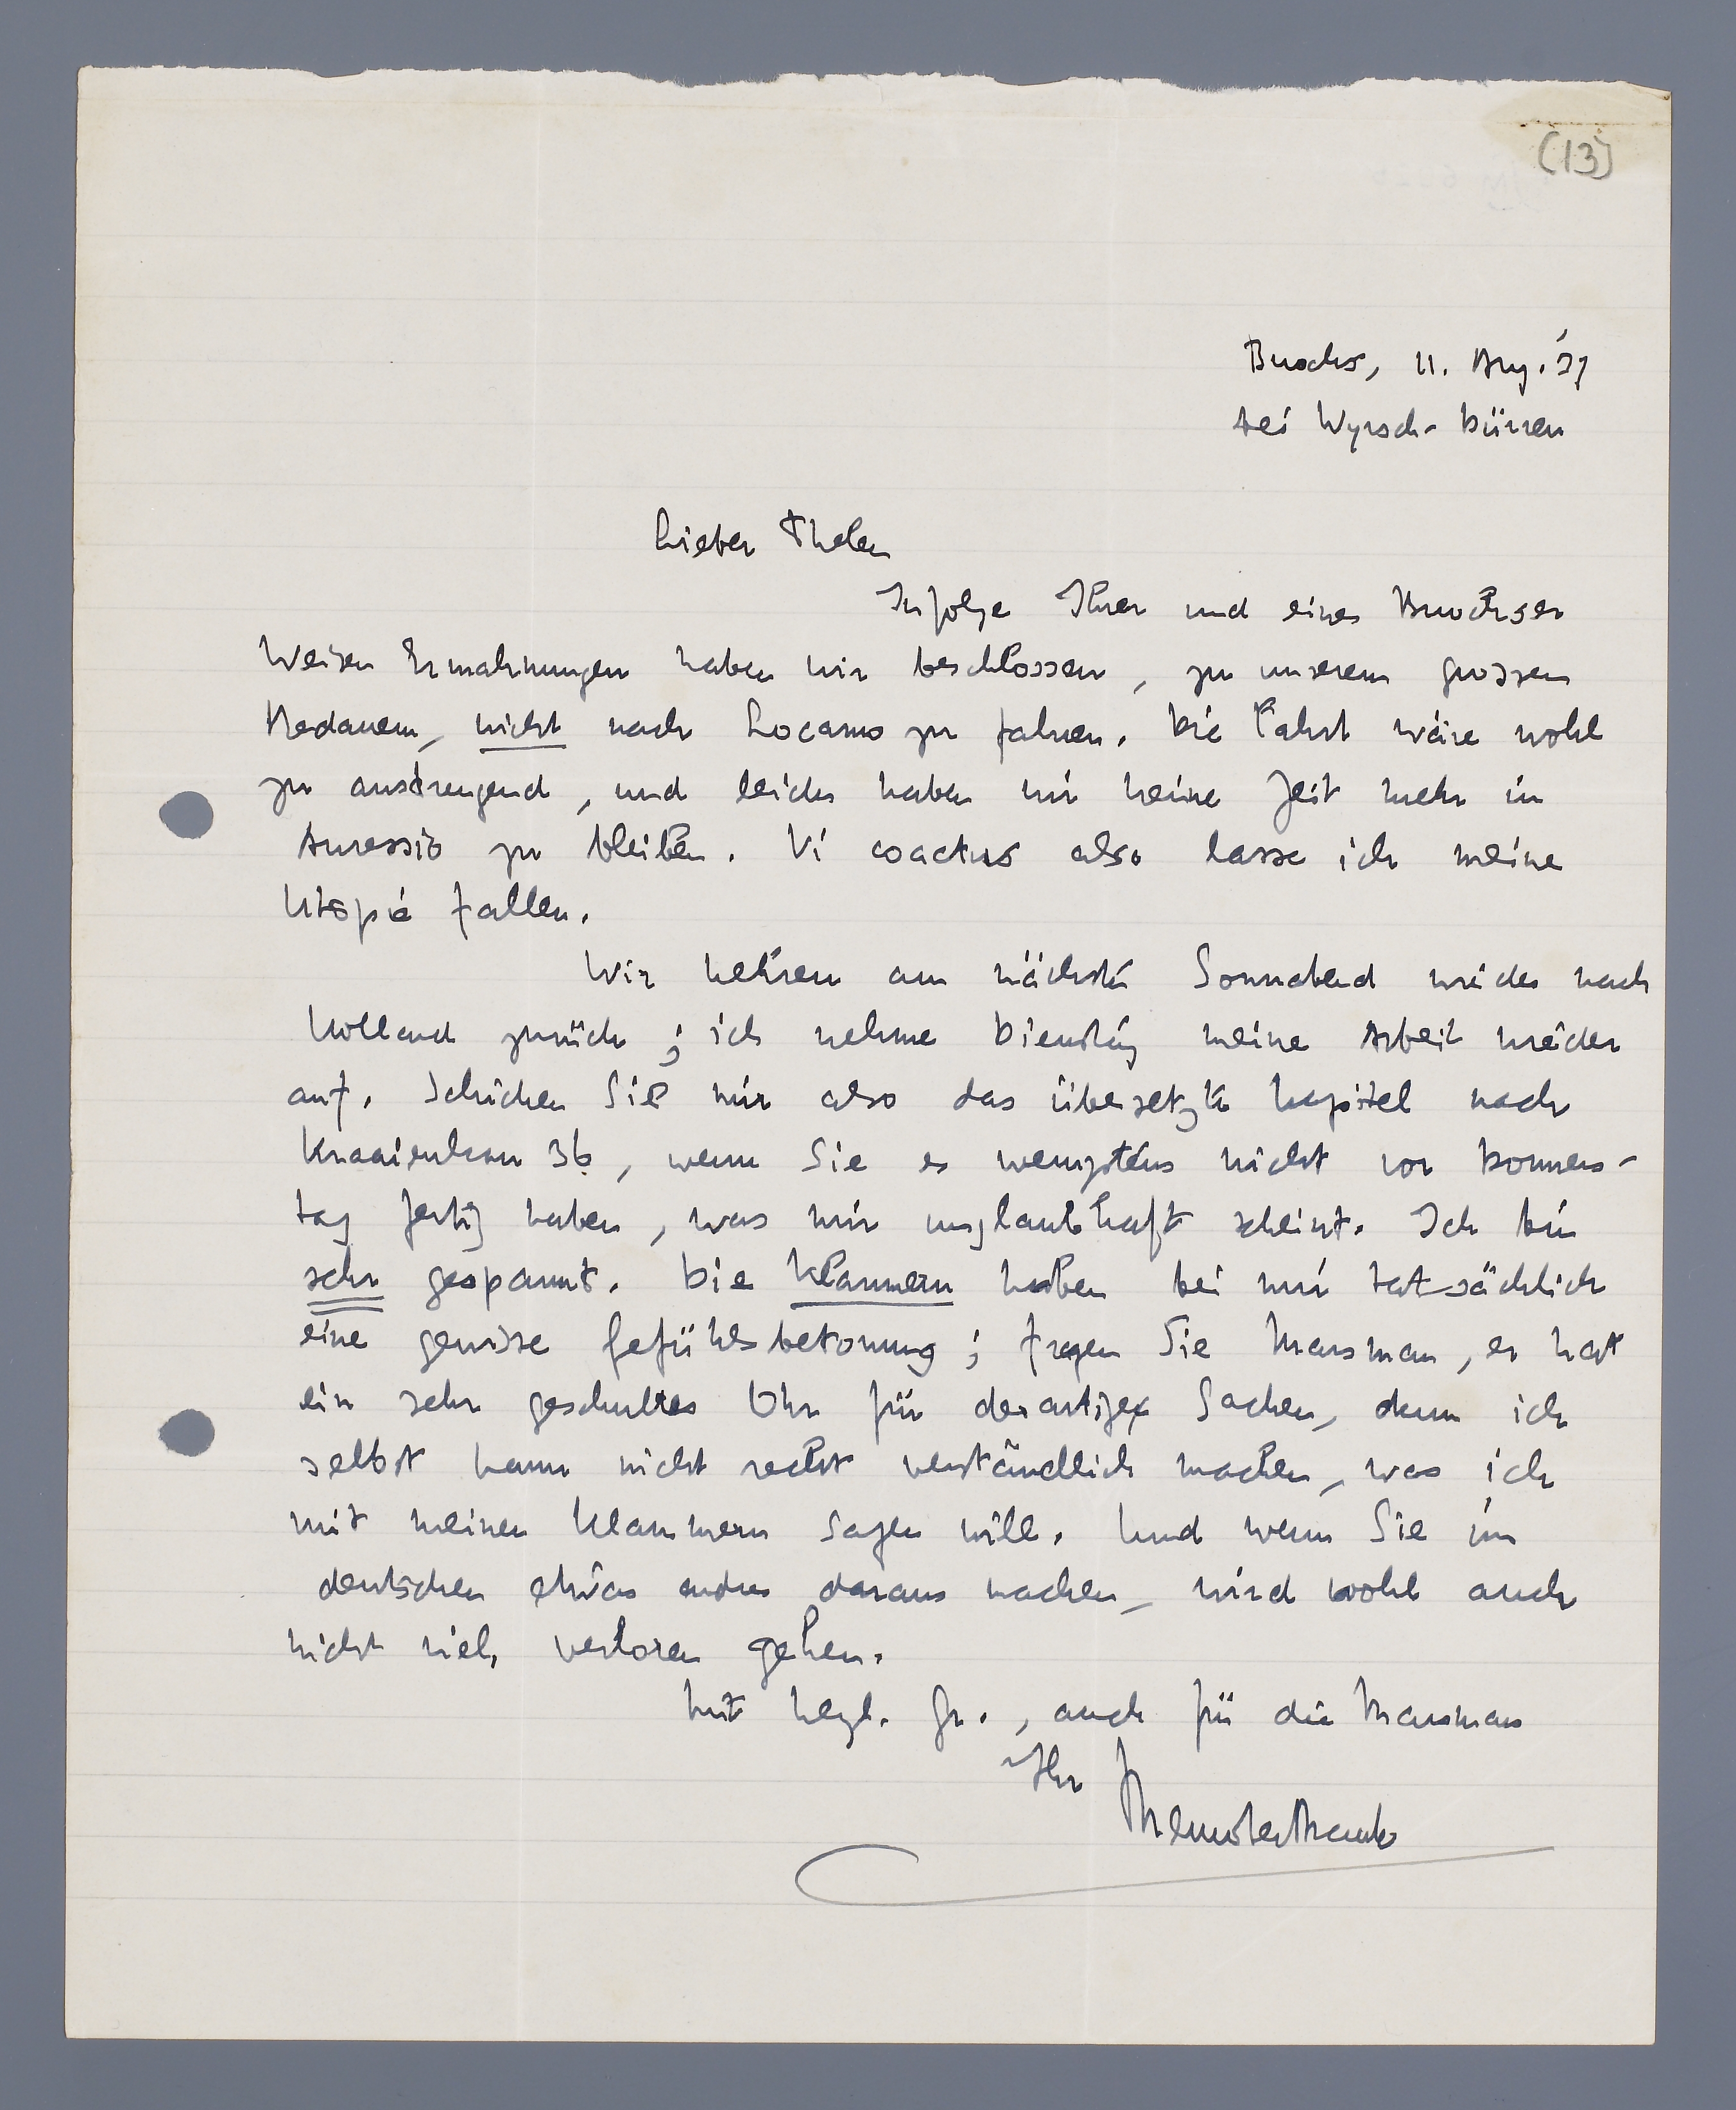 (13)
Buochs, 11. Aug. '37
bei Wyrsch-Dürrer
Lieber Thelen
Infolge Ihrer und eines Buochser
Weisen Ermahnungen haben wir beschlossen, zu unserem grossen
Bedauern, nicht nach Locarno zu fahren. Die Fahrt wäre wohl
zu anstrengend, und leider haben wir keine Zeit mehr in
Auressio zu bleiben. Vi coactus also lasse ich meine
Utopie fallen.
Wir kehren am nächsten Sonnabend wieder nach
Holland zurück; ich nehme Dienstag meine Arbeit wieder
auf. Schicken Sie mir also das übersetzte Kapitel nach
Kraaienlaan 36, wenn Sie es wenigstens nicht vor Donners-
tag fertig haben, was mir unglaubhaft scheint. Ich bin
sehr gespannt. Die Klammern haben bei mir tatsächlich
eine gewisse Gefühlsbetonung; fragen Sie Marsman, er hat
ein sehr geschultes Ohr für derartige Sachen, denn ich
selbst kann nicht recht verständlich machen, was ich
mit meinen Klammern sagen will. Und wenn Sie im
deutschen etwas andres daraus machen, wird wohl auch
nicht viel verloren gehen.
Mit herzl. Gr., auch für die Marsmans
Ihr
Menno ter Braak